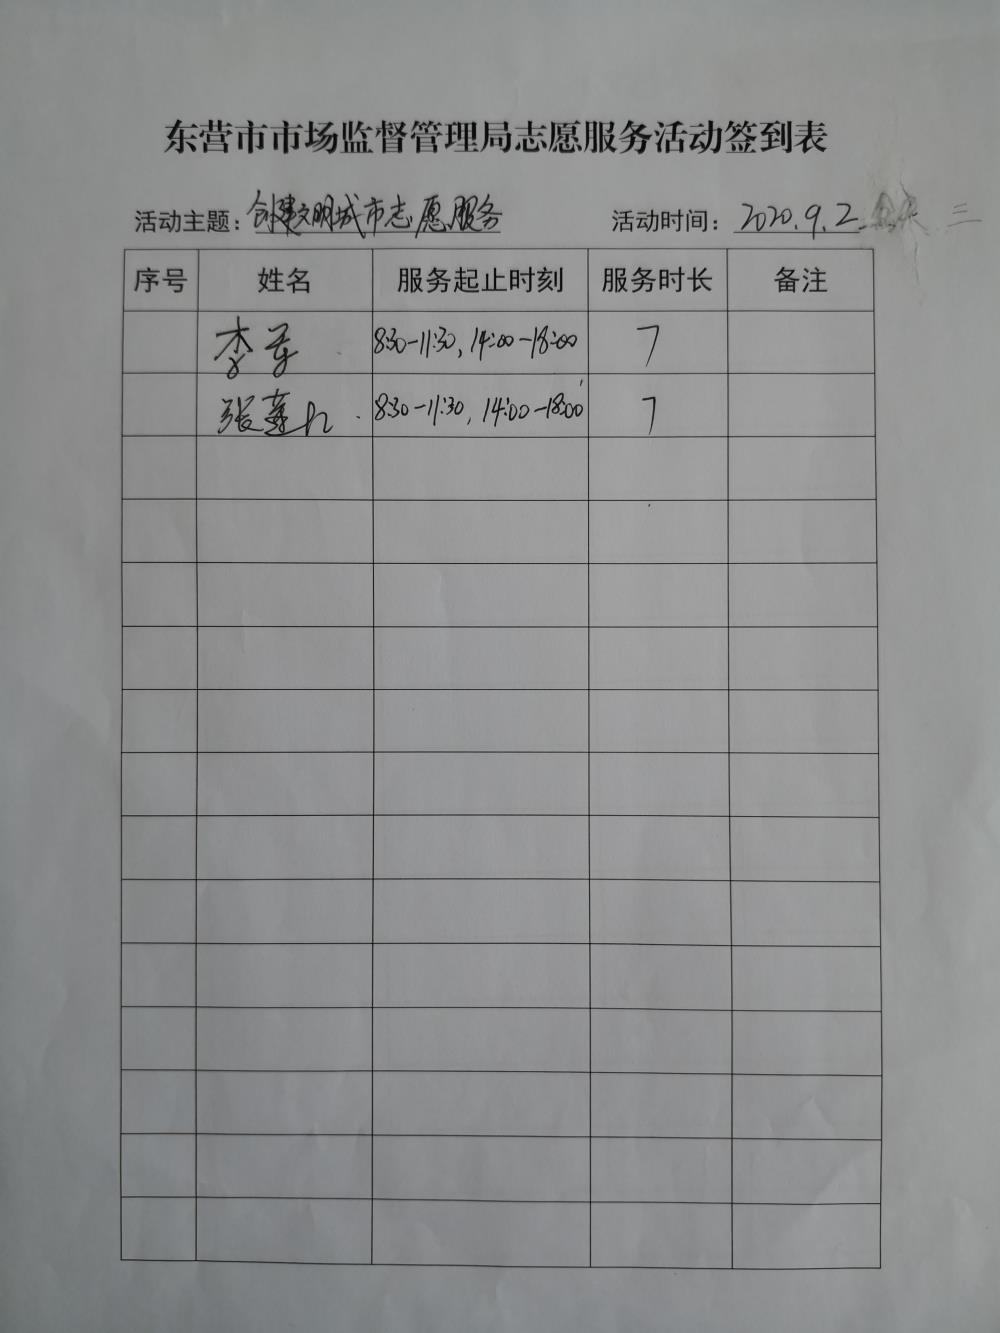 东营市市场监督管理局志愿服务活动签到表
活动主题：创建文明城市志愿服务 活动时间：2020.9.2 三
序号 姓名 服务起止时刻 服务时长 备注
李 8:30-11:30, 14:00-18:00 7
张莲 8:30-11:30, 14:00-18:00 7